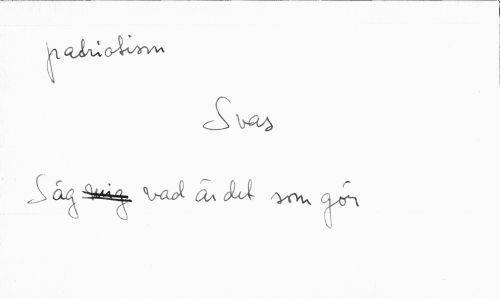 patriotism
Svas
Säg mig vad är det som gör